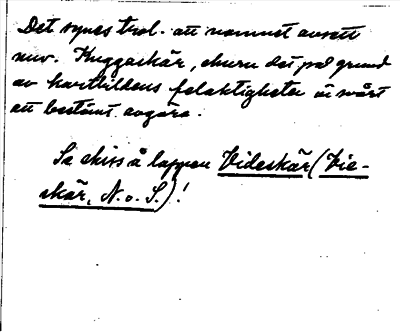 Det synes trol. att namnet avsett
nuv. Kuggaskär, churu det på grund
av kartbildens felaktigheter är svårt
att bestämt avgöra.
Se skiss å lappen Videskär (Vie-
skär, N. o. S.)!